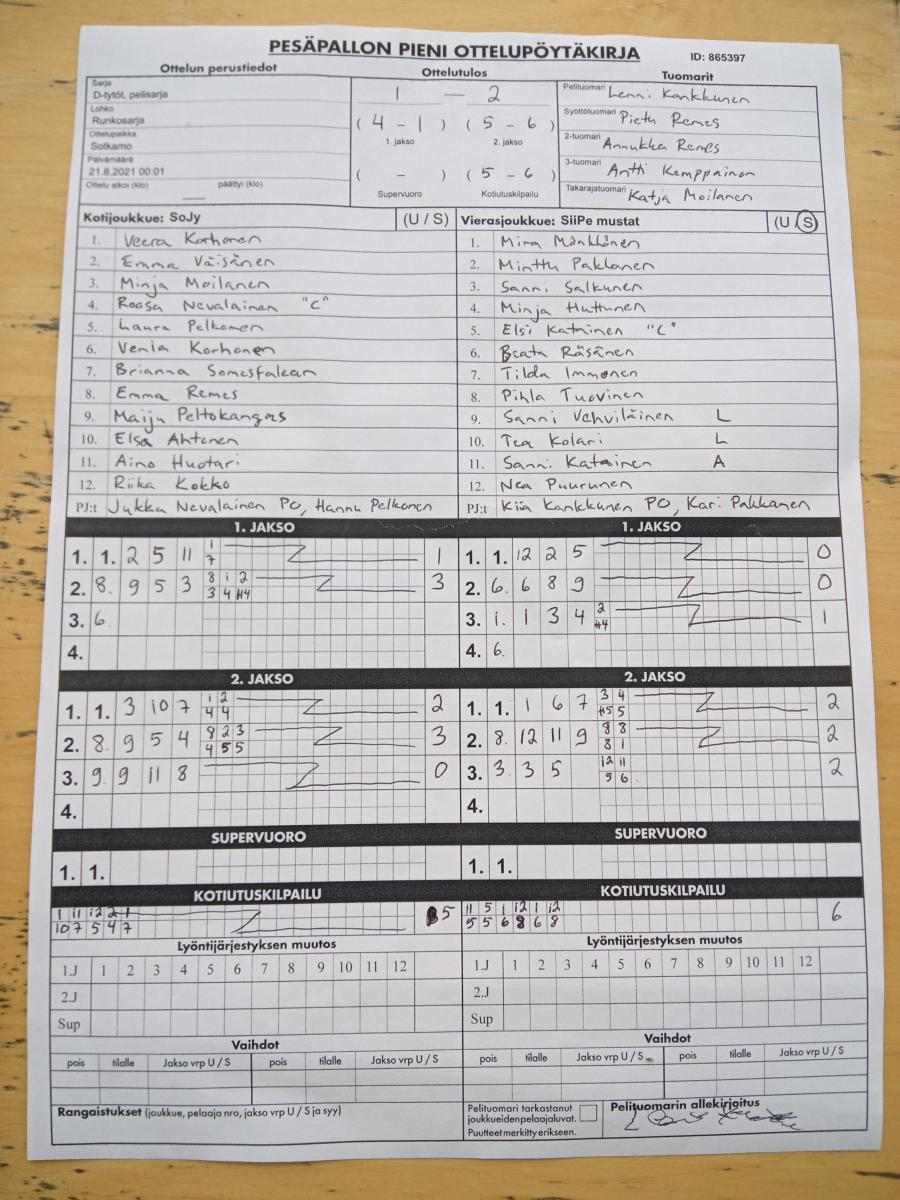 PESÄPALLON PIENI OTTELUPÖYTÄKIRJA ID: 865397
Ottelun perustiedot Ottelutulos Tuomarit
Sarja
D-tytöt, pelisarja
Lohko
Runkosarja
Ottelupaikka
Sotkamo
Päivämäärä
21.8.2021 00:01
Ottelu alkoi (klo) päättyi (klo)
1 — 2
( 4 - 1 ) ( 5 - 6 )
1. jakso 2. jakso
( - ) ( 5 - 6 )
Supervuoro Kotiutuskilpailu
Pelituomari Lenni Kankkunen
Syöttötuomari Pietu Remes
2-tuomari Annukka Remes
3-tuomari Antti Kemppainen
Takarajatuomari Katja Moilanen
Kotijoukkue: SoJy (U / S) Vierasjoukkue: SiiPe mustat (U / S)
1. Veera Korhonen 1. Mira Mönkkönen
2. Emma Väisänen 2. Minttu Pakkanen
3. Minja Moilanen 3. Sanni Salkunen
4. Roosa Nevalainen "C" 4. Minja Huttunen
5. Laura Pelkonen 5. Elsi Katainen "C"
6. Venla Korhonen 6. Beata Räsänen
7. Brianna Somesfalean 7. Tilda Immonen
8. Emma Remes 8. Pihla Tuovinen
9. Maiju Peltokangas 9. Sanni Vehviläinen L
10. Elsa Ahtonen 10. Tea Kolari L
11. Aino Huotari 11. Sanni Katainen A
12. Riika Kokko 12. Nea Puurunen
PJ:t Jukka Nevalainen PO, Hannu Pelkonen PJ:t Kiia Kankkunen PO, Kari Pakkanen
1. JAKSO 1. JAKSO
1. 1. 2 5 11 1 7 1 1. 1. 12 2 5 0
2. 8. 9 5 3 8 1 2 3 4 H4 3 2. 6. 6 8 9 0
3. 6. 3. 1. 1 3 4 2 H4 1
4. 4. 6.
2. JAKSO 2. JAKSO
1. 1. 3 10 7 1 2 4 4 2 1. 1. 1 6 7 3 4 H5 5 2
2. 8. 9 5 4 8 2 3 4 5 5 3 2. 8. 12 11 9 8 8 8 1 2
3. 9. 9 11 8 0 3. 3. 3 5 12 11 5 6 2
4. 4.
SUPERVUORO SUPERVUORO
1. 1. 1. 1.
KOTIUTUSKILPAILU KOTIUTUSKILPAILU
1 11 12 2 1 5 11 5 1 12 1 12 6
10 7 5 4 7 5 5 6 8 6 8
Lyöntijärjestyksen muutos Lyöntijärjestyksen muutos
1.J 1 2 3 4 5 6 7 8 9 10 11 12 1.J 1 2 3 4 5 6 7 8 9 10 11 12
2.J 2.J
Sup Sup
Vaihdot Vaihdot
pois tilalle Jakso vrp U / S pois tilalle Jakso vrp U / S pois tilalle Jakso vrp U / S pois tilalle Jakso vrp U / S
Rangaistukset (joukkue, pelaaja nro, jakso vrp U / S ja syy)
Pelituomari tarkastanut
joukkueiden pelaajaluvat.
Puutteet merkitty erikseen.
Pelituomarin allekirjoitus